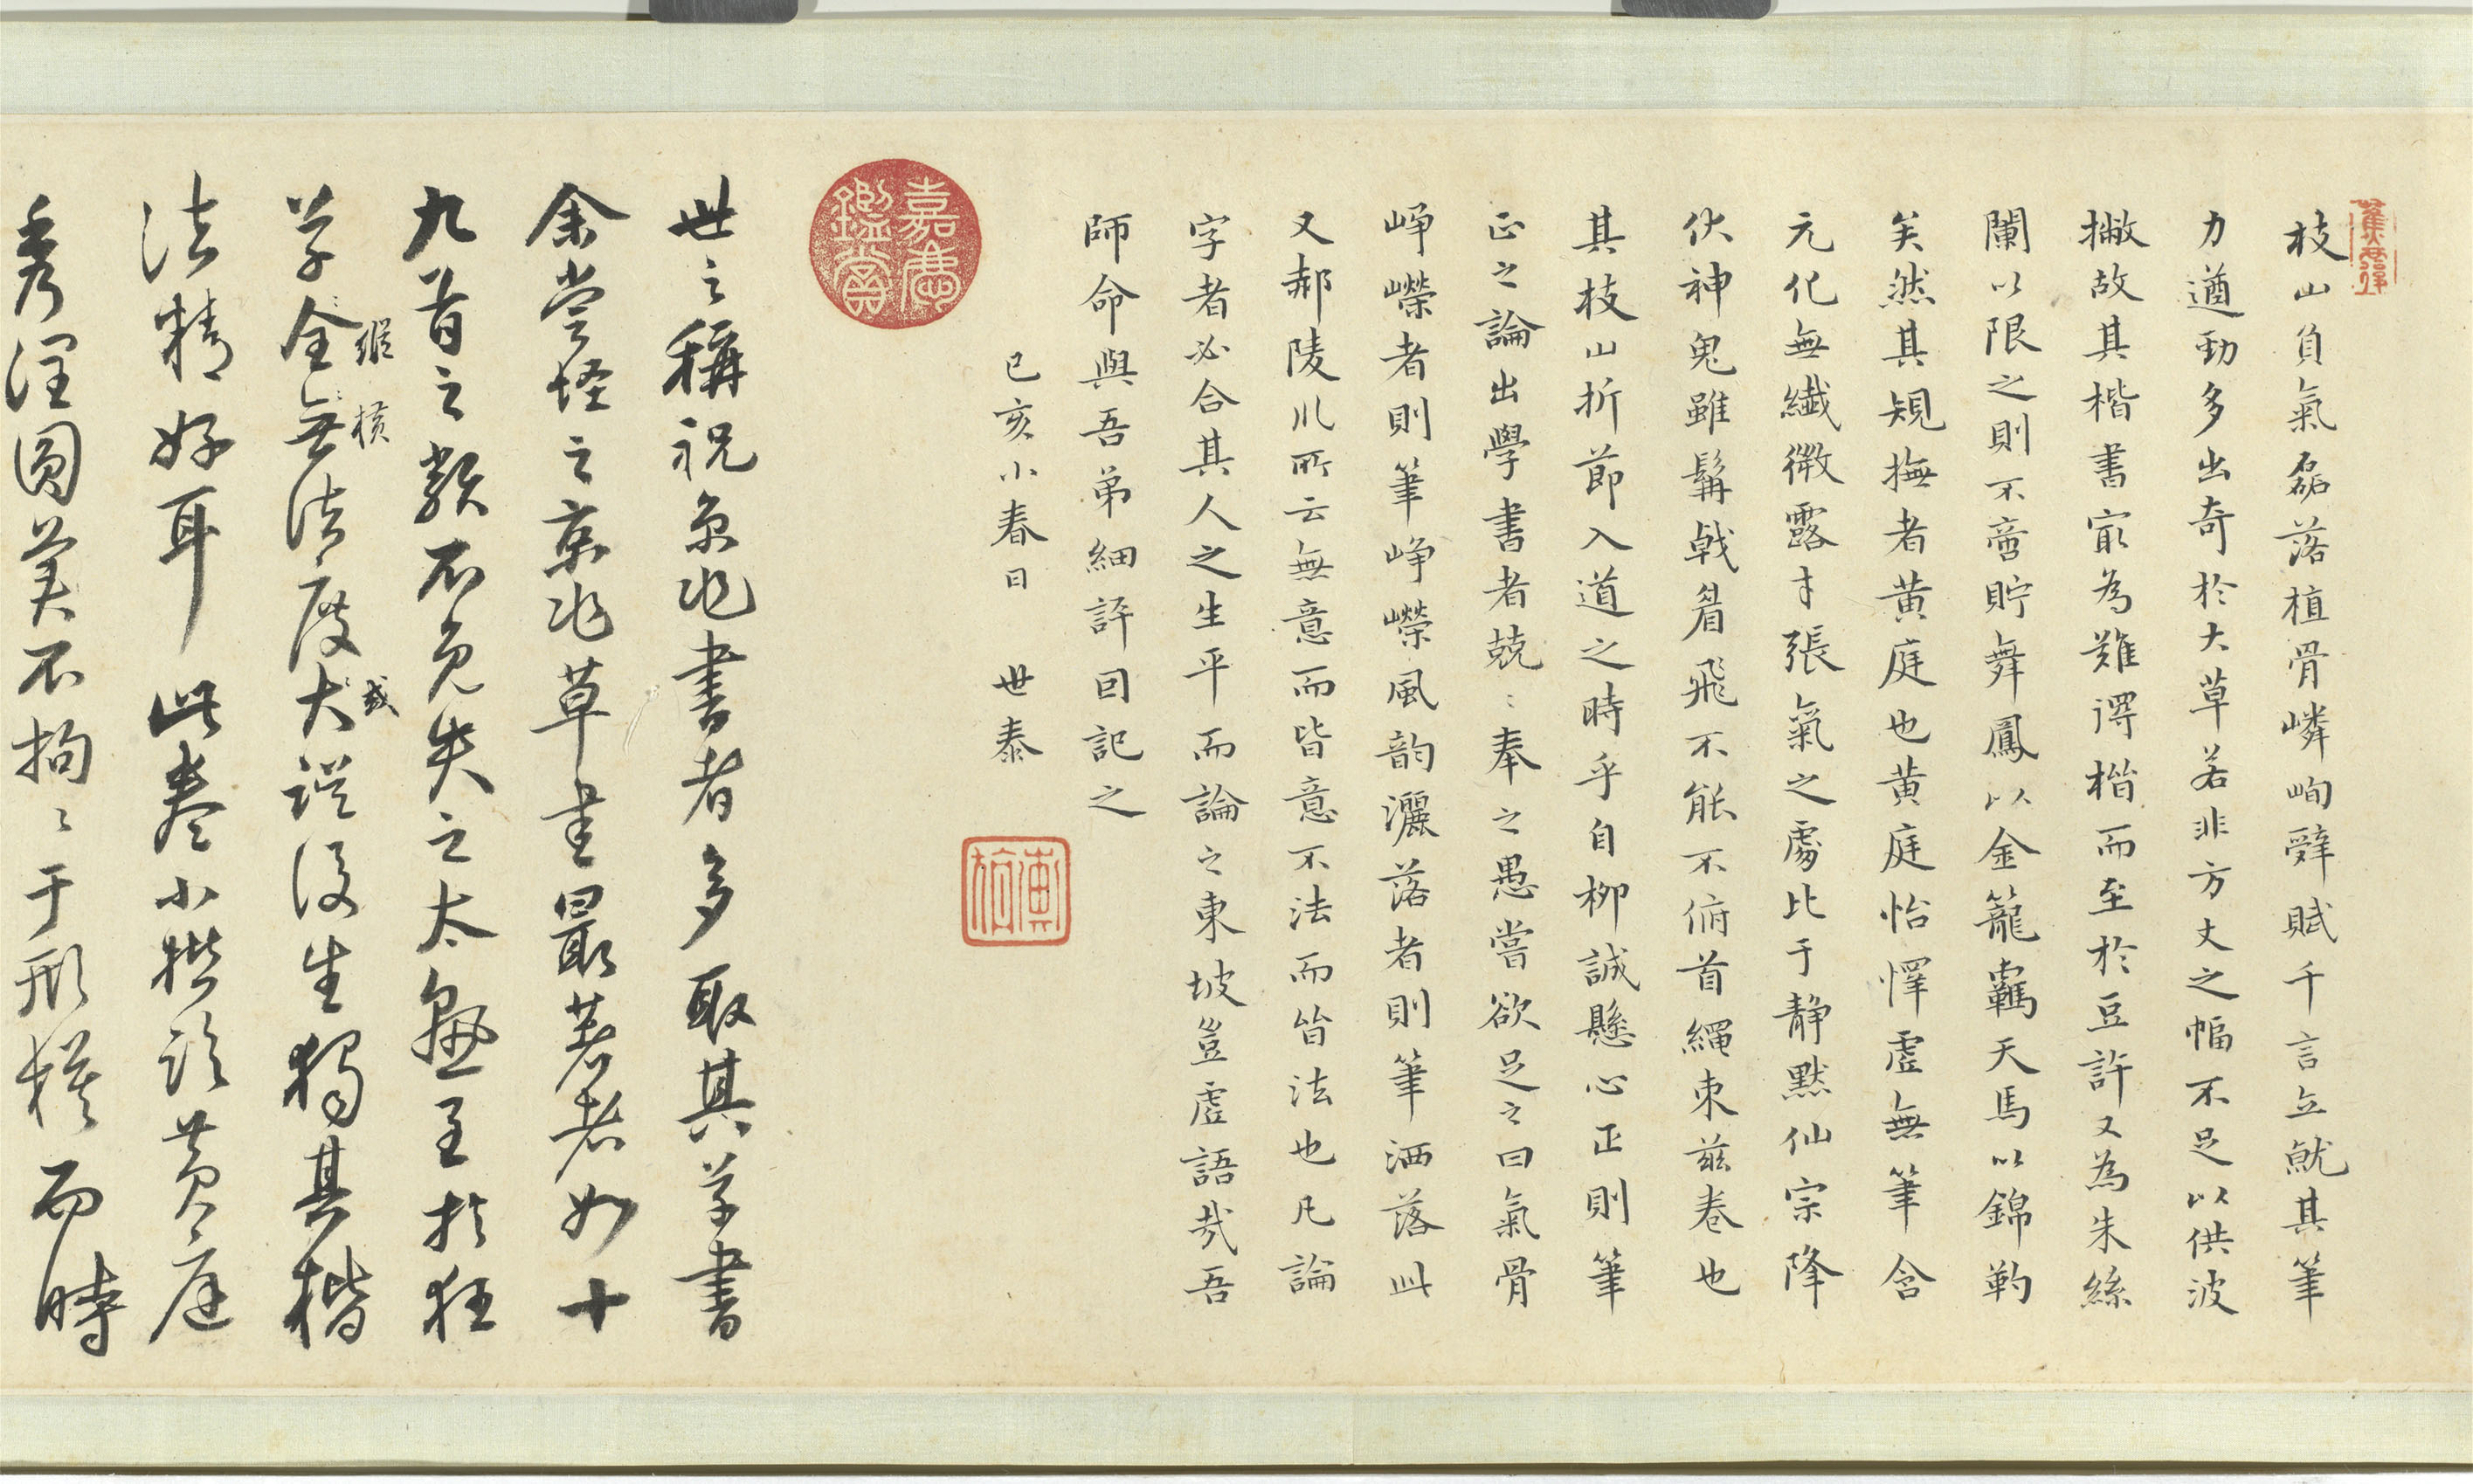 枝山負氣磊落植骨嶙峋辭賦千言立就其筆
力遒勁多出奇於大草若非方丈之幅不足以供波
撇故其楷書㝡為難得楷而至於豆許又為朱絲
闌以限之則不啻貯舞鳳以金籠羈天馬以錦勒
矣然其規撫者黃庭也黃庭怡懌虛無筆含
元化無纖微露才張氣之處比于靜默仙宗降
伏神鬼雖髯戟眉飛不能不俯首繩束茲卷也
其枝山折節入道之時乎自柳誠懸心正則筆
正之論出學書者兢〻奉之愚嘗欲足之曰氣骨
崢嶸者則筆崢嶸風韵灑落者則筆洒落此
又郝陵川所云無意而皆意不法而皆法也凡論
字者必合其人之生平而論之東坡豈虛語哉吾
師命與吾弟細評因記之
已亥小春日 世泰
嘉慶鑑賞
世之稱祝京兆書者多取其草書
余嘗怪之京兆草書最著者如十
九首之類不免失之太 至於狂
草全無法度大 獨其楷
縱橫
或
法精好耳此卷小楷臨黃庭
秀潤圓美不拘〻于形模而時